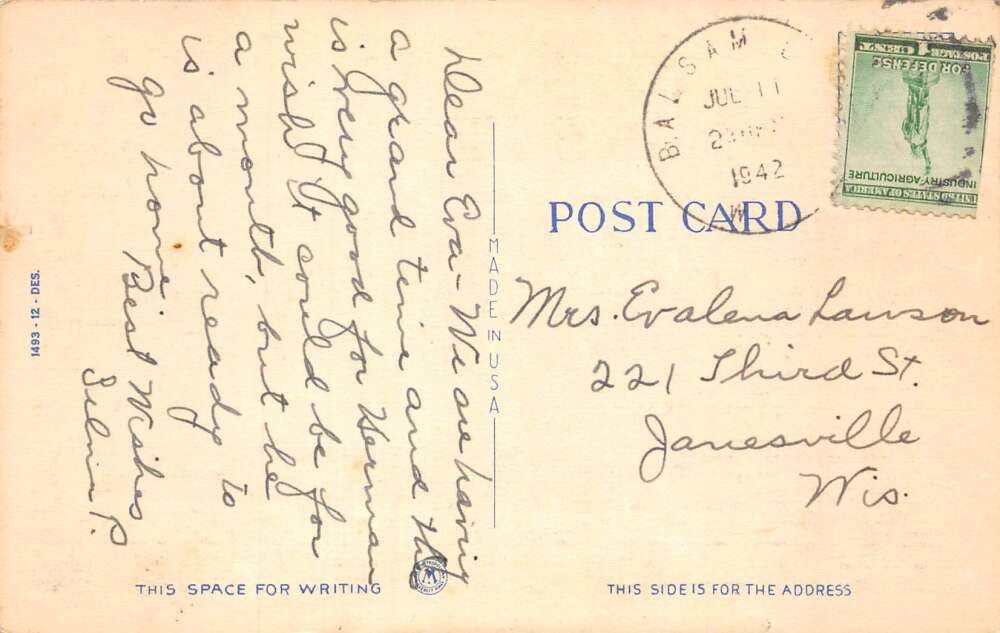 Dear Eva - We are having
a grand time and this
is very good for Herman
wish it could be for
a month, but he
is about ready to
go home
Best Wishes
Selma P.
1493 - 12 - DES.
MADE IN USA
THIS SPACE FOR WRITING
M
BALSAM
JUL 11
1942
W
UNITED STATES OF AMERICA
INDUSTRY·AGRICULTURE
FOR DEFENSE
POSTAGE 1 CENT
POST CARD
Mrs. Evalena Lawson
221 Third St.
Janesville
Wis.
THIS SIDE IS FOR THE ADDRESS